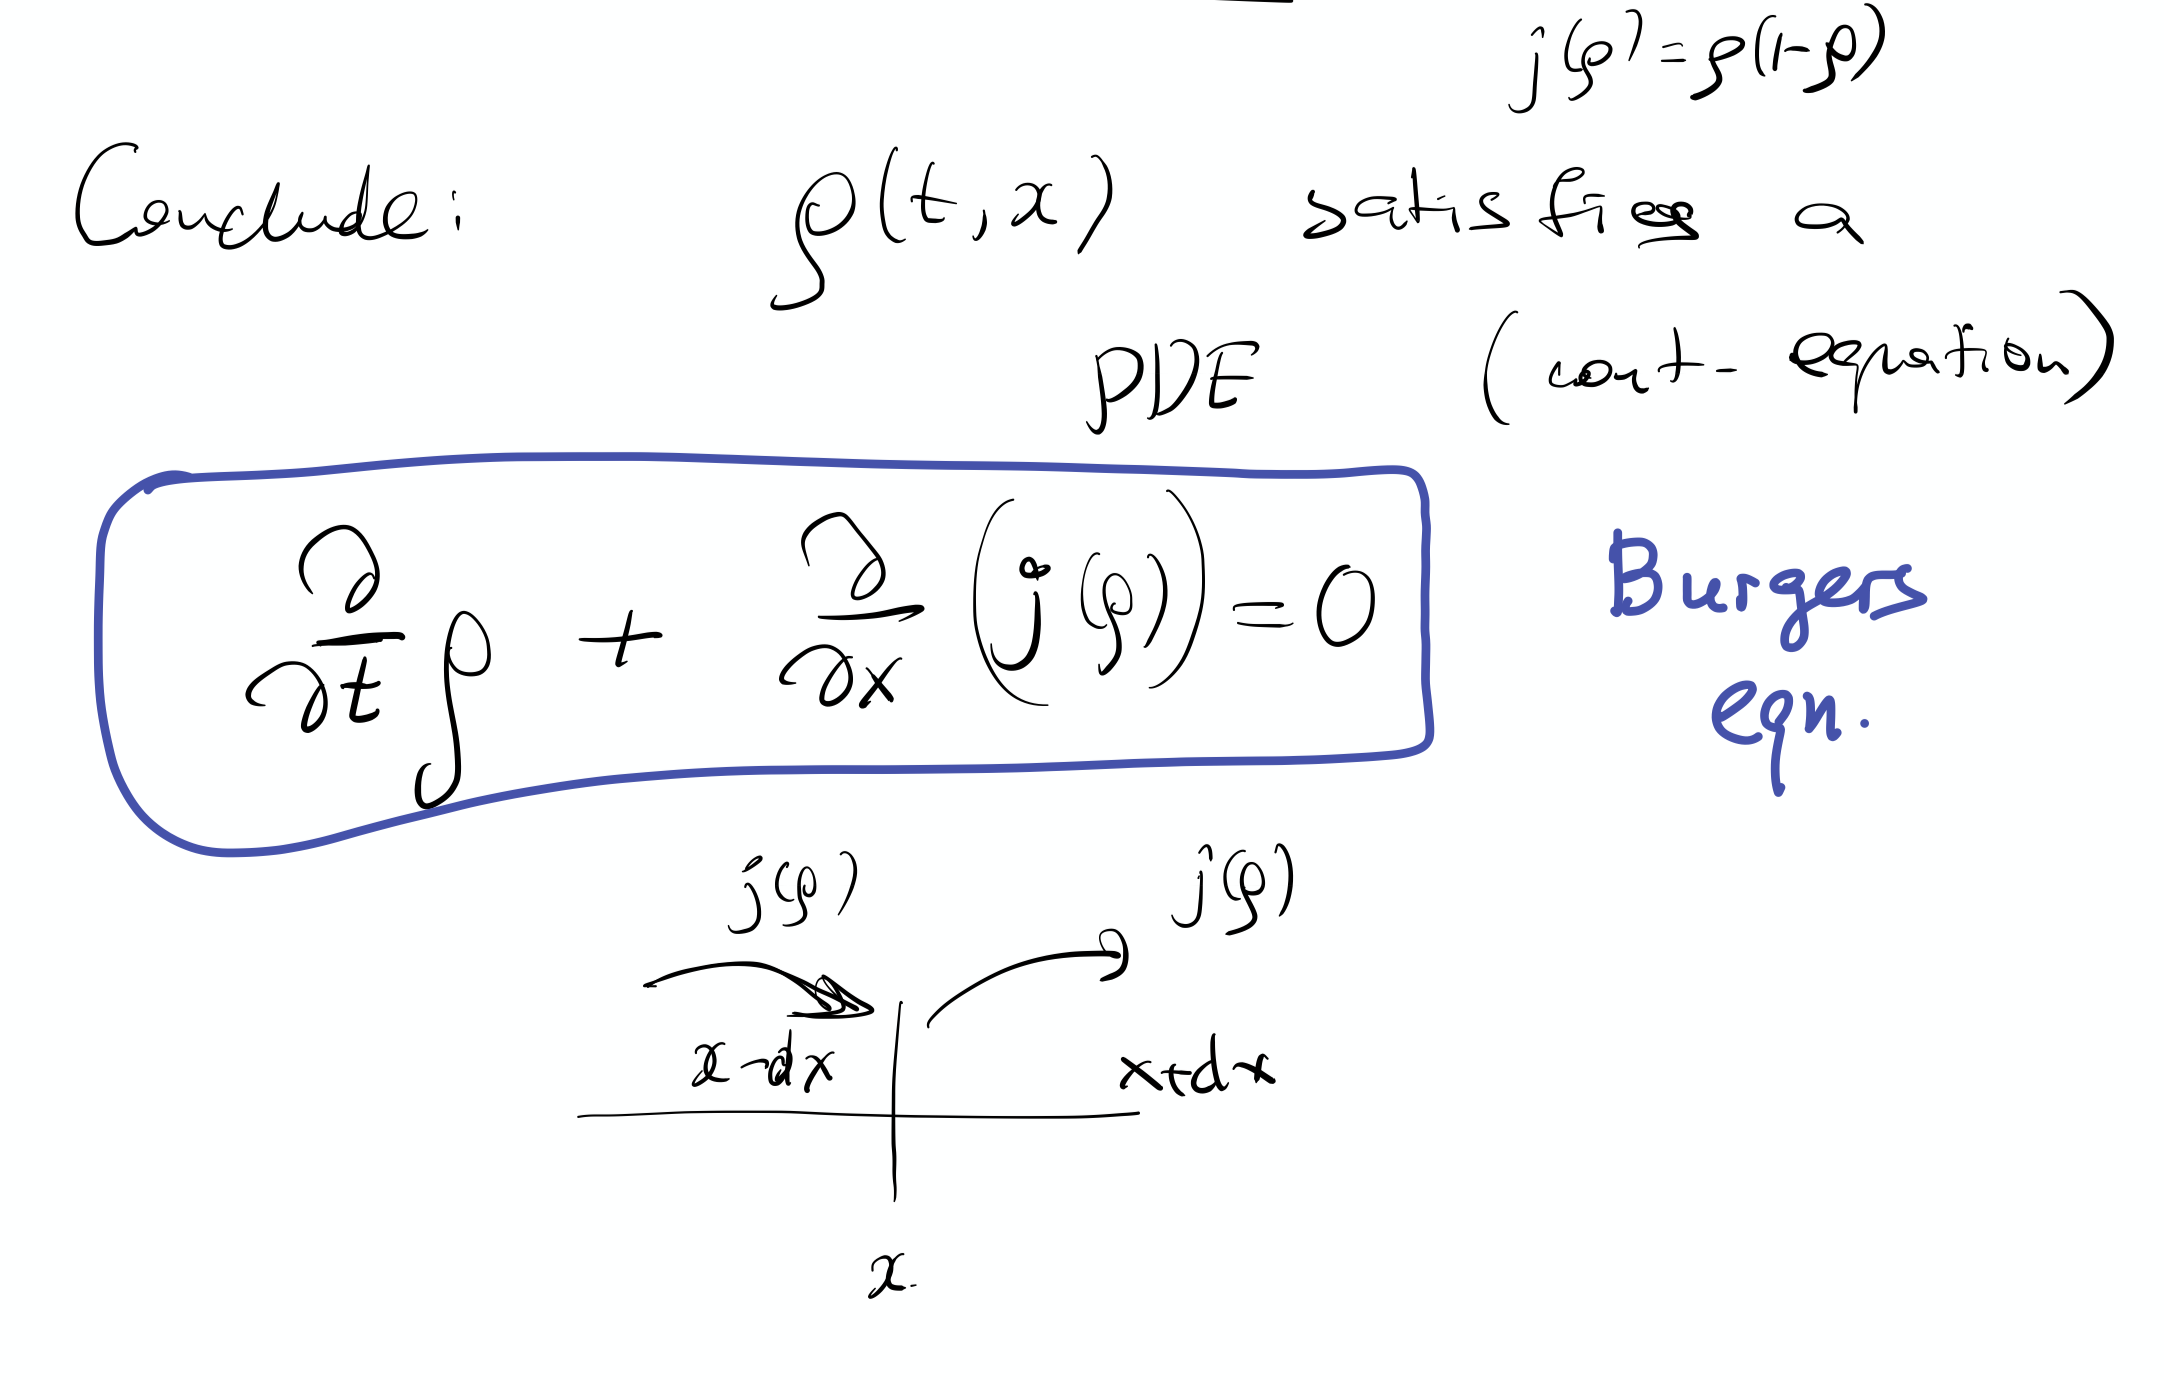 j(ρ) = ρ(1-ρ)
Conclude: ρ(t,x) satisfies a
PDE (cont- equation)
∂/∂t ρ + ∂/∂x (j(ρ)) = 0
Burgers
eqn.
j(ρ) j(ρ)
x-dx x+dx
x